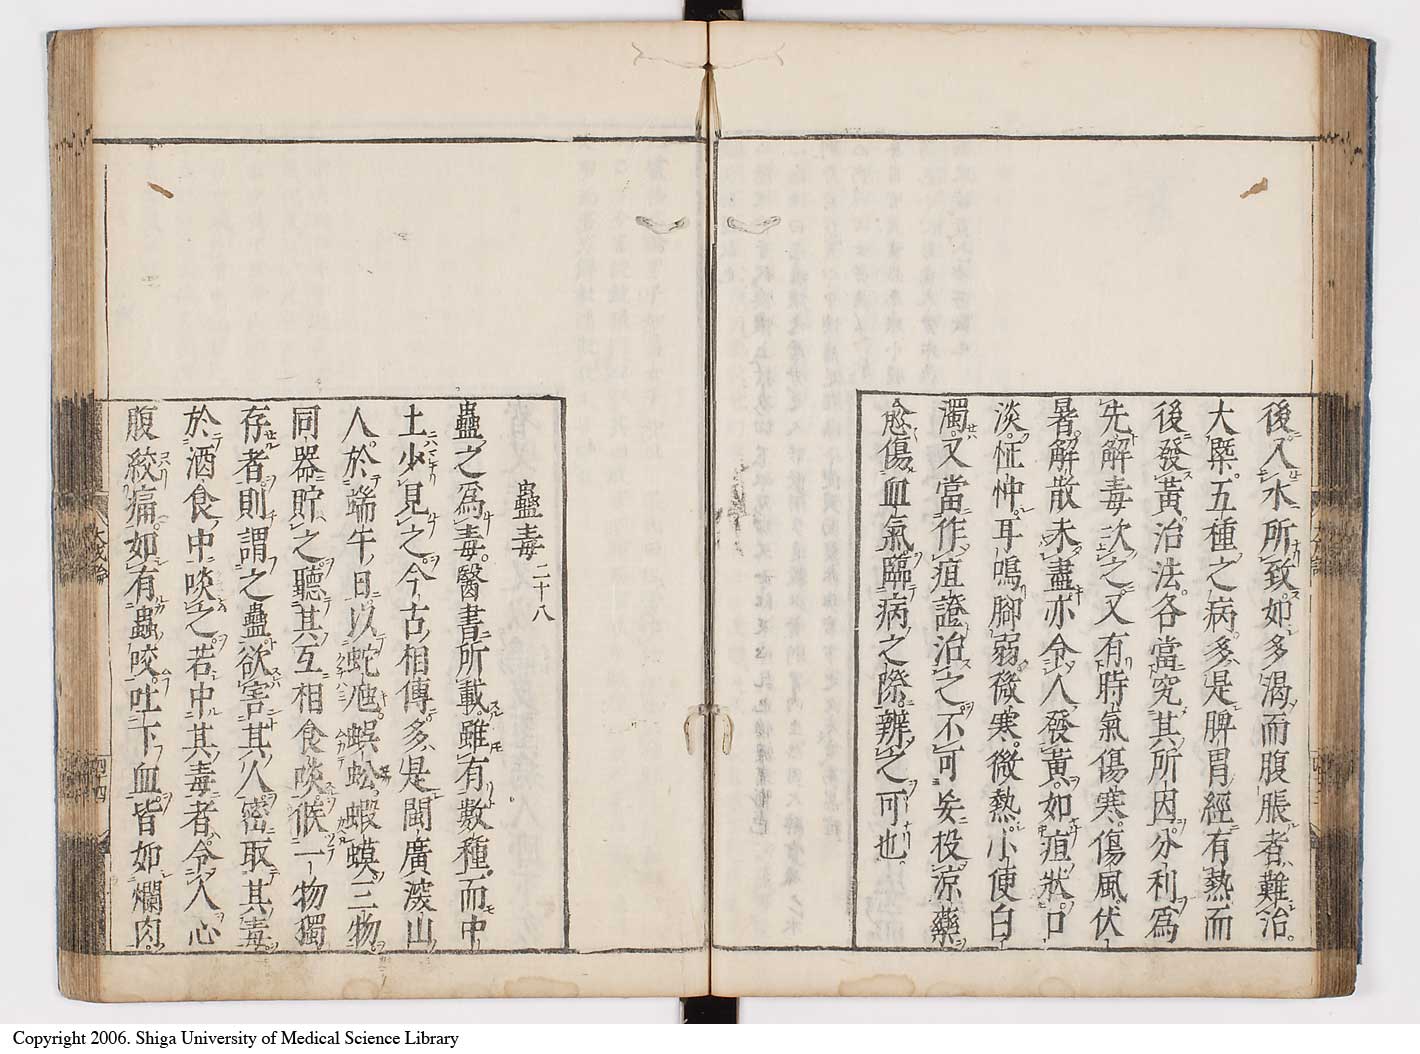 後入水所致如多渴而腹脹者難治
大槩五種之病多是脾胃經有熱而
後發黃治法各當究其所因分利爲
先解毒次之又有時氣傷寒傷風伏
暑解散未盡亦令人發黃如疸狀口
淡怔忡耳鳴腳弱微寒微熱小便白
濁又當作疸證治之不可妄投涼藥
愈傷血氣臨病之際辨之可也
蠱毒二十八
蠱之爲毒醫書所載雖有數種而中
土少見之今古相傳多是閩廣深山
人於端午日以蛇虺蜈蚣蝦蟆三物
同器貯之聽其互相食啖俟一物獨
存者則謂之蠱欲害其人密取其毒
於酒食中啖之若中其毒者令人心
腹絞痛如有蟲咬吐下血皆如爛肉
Copyright 2006. Shiga University of Medical Science Library